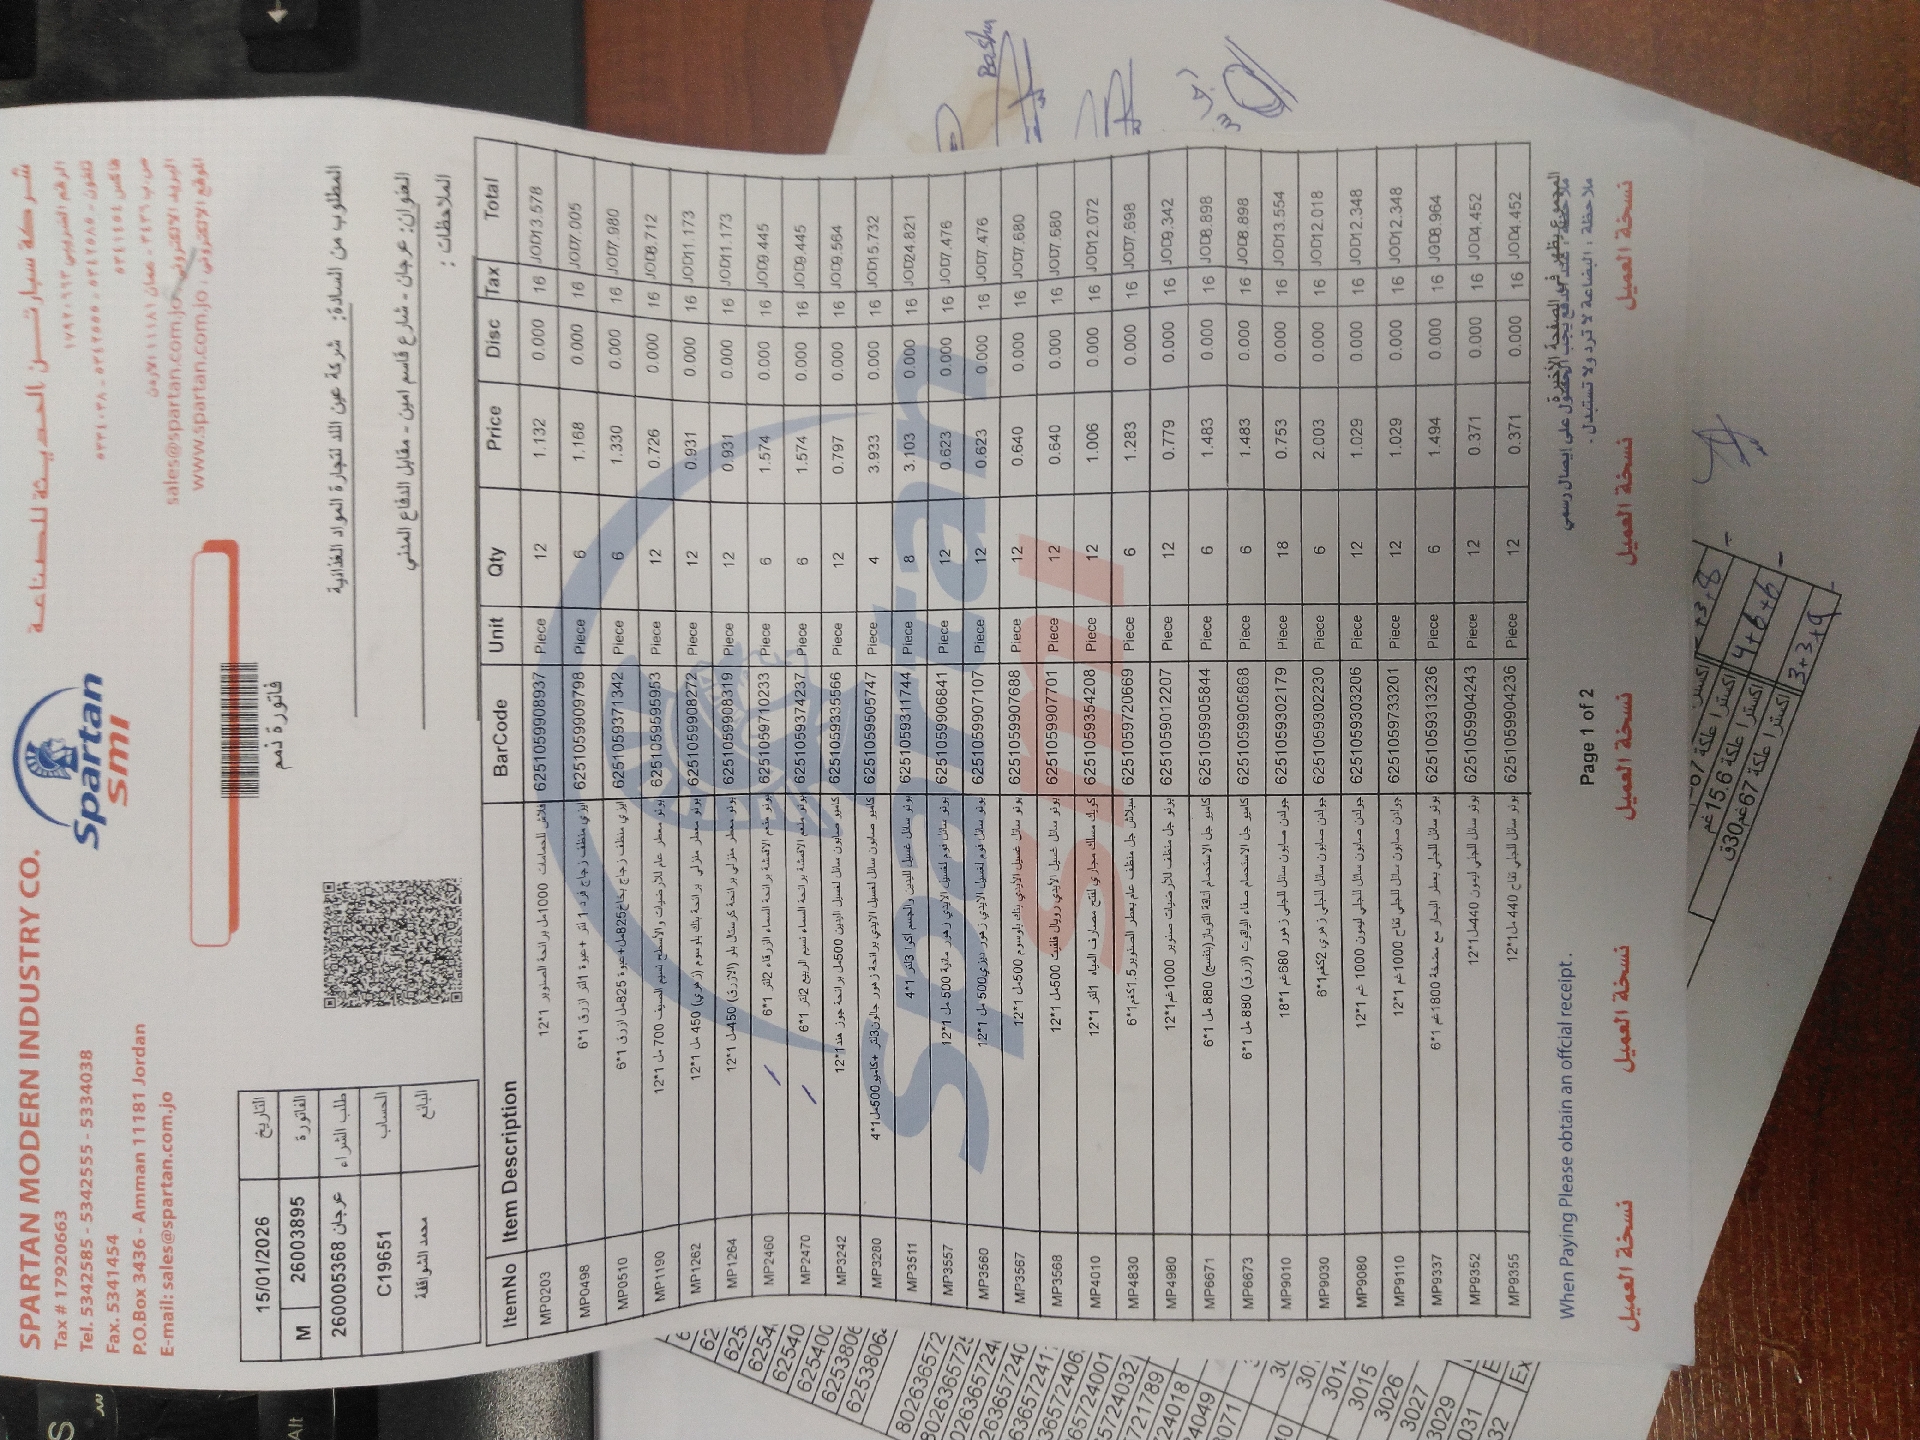 SPARTAN MODERN INDUSTRY CO.
Tax # 17920663
Tel. 5342585 - 5342555 - 5334038
Fax. 5341454
P.O.Box 3436 - Amman 11181 Jordan
E-mail: sales@spartan.com.jo
Spartan
smi
شركة سبارتن الحديثة للصناعة
sales@spartan.com.jo
www.spartan.com.jo
فاتورة ذمم
15/01/2026 التاريخ
M 26003895 الفاتورة
عرجان 260005368 طلب الشراء
C19651 الحساب
البائع
المطلوب من السادة: شركة عين اللد لتجارة المواد الغذائية
العنوان: عرجان - شارع قاسم امين - مقابل الدفاع المدني
الملاحظات :
ItemNo Item Description BarCode Unit Qty Price Disc Tax Total
MP0203 فلاش للحمامات 1000مل برائحة الصنوبر 1*12 6251059908937 Piece 12 1.132 0.000 16 JOD13.578
MP0498 ايزي منظف زجاج فرد 1 لتر +عبوة 1لتر ازرق 1*6 6251059909798 Piece 6 1.168 0.000 16 JOD7.005
MP0510 ايزي منظف زجاج بخاخ825مل+عبوة 825مل ازرق 1*6 6251059371342 Piece 6 1.330 0.000 16 JOD7.980
MP1190 بونو معطر عام للارضيات والأسطح نسيم الصيف 700 مل 1*12 6251059595953 Piece 12 0.726 0.000 16 JOD8.712
MP1262 بونو معطر منزلي برائحة بنك بلوسوم (زهري) 450 مل 1*12 6251059908272 Piece 12 0.931 0.000 16 JOD11.173
MP1264 بونو معطر منزلي برائحة كرستال بلو (الازرق) 450مل 1*12 6251059908319 Piece 12 0.931 0.000 16 JOD11.173
MP2460 بونو منعم الاقمشة برائحة السماء الزرقاء 2لتر 1*6 6251059710233 Piece 6 1.574 0.000 16 JOD9.445
MP2470 بونو منعم الاقمشة برائحة السماء نسيم الربيع 2لتر 1*6 6251059374237 Piece 6 1.574 0.000 16 JOD9.445
MP3242 كاميو صابون سائل لغسيل اليدين 500مل برائحة جوز هند 1*12 6251059335566 Piece 12 0.797 0.000 16 JOD9.564
MP3280 كاميو صابون سائل لغسيل الايدي برائحة زهور جالون3لتر +كاميو500مل1*4 6251059505747 Piece 4 3.933 0.000 16 JOD15.732
MP3511 بونو سائل غسيل لليدين والجسم اكوا 3لتر 1*4 6251059311744 Piece 8 3.103 0.000 16 JOD24.821
MP3557 بونو سائل فوم لغسيل الايدي زهور مائية 500 مل 1*12 6251059906841 Piece 12 0.623 0.000 16 JOD7.476
MP3560 بونو سائل فوم لغسيل الايدي زهور ديزي500 مل 1*12 6251059907107 Piece 12 0.623 0.000 16 JOD7.476
MP3567 بونو سائل غسيل الايدي بنك بلوسوم 500مل 1*12 6251059907688 Piece 12 0.640 0.000 16 JOD7.680
MP3568 بونو سائل غسيل الايدي رويال فلفيت 500مل 1*12 6251059907701 Piece 12 0.640 0.000 16 JOD7.680
MP4010 كويك مسلك مجاري لفتح مصارف المياه 1لتر 1*12 6251059354208 Piece 12 1.006 0.000 16 JOD12.072
MP4830 سبلاش جل منظف عام بعطر الصنوبر 1.5كغم 1*6 6251059720669 Piece 6 1.283 0.000 16 JOD7.698
MP4980 بونو جل منظف للارضيات صنوبر 1000غم 1*12 6251059012207 Piece 12 0.779 0.000 16 JOD9.342
MP6671 كاميو جل الاستحمام اناقة التوباز (بنفسج) 880 مل 1*6 6251059905844 Piece 6 1.483 0.000 16 JOD8.898
MP6673 كاميو جل الاستحمام صفاء الياقوت (ازرق) 880 مل 1*6 6251059905868 Piece 6 1.483 0.000 16 JOD8.898
MP9010 جولدن صابون سائل للجلي زهور 680غم 1*18 6251059302179 Piece 18 0.753 0.000 16 JOD13.554
MP9030 جولدن صابون سائل للجلي زهري 2كغم 1*6 6251059302230 Piece 6 2.003 0.000 16 JOD12.018
MP9080 جولدن صابون سائل للجلي ليمون 1000 غم 1*12 6251059303206 Piece 12 1.029 0.000 16 JOD12.348
MP9110 جولدن صابون سائل للجلي تفاح 1000غم 1*12 6251059733201 Piece 12 1.029 0.000 16 JOD12.348
MP9337 بونو سائل للجلي بعطر البحار مع مضخة 1800غم 1*6 6251059313236 Piece 6 1.494 0.000 16 JOD8.964
MP9352 بونو سائل للجلي ليمون 440مل 1*12 6251059904243 Piece 12 0.371 0.000 16 JOD4.452
MP9355 بونو سائل للجلي تفاح 440 مل 1*12 6251059904236 Piece 12 0.371 0.000 16 JOD4.452
المجموع يظهر في الصفحة الأخيرة
ملاحظة : عند الدفع يجب الحصول على إيصال رسمي
ملاحظة : البضاعة لا ترد ولا تستبدل .
When Paying Please obtain an offcial receipt .
Page 1 of 2
نسخة العميل نسخة العميل نسخة العميل نسخة العميل نسخة العميل